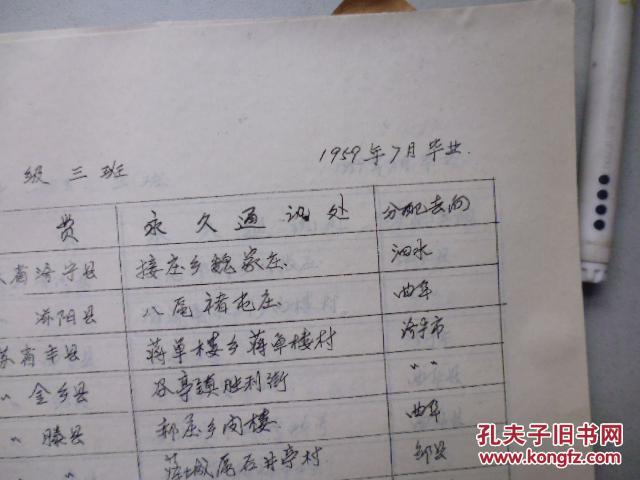 级三班 1959年7月毕业.
贯 永久通讯处 分配去向
省济宁县 接庄乡魏家庄. 泗水
〃 济阳县 八尾褚屯庄. 曲阜
苏省丰县 蒋单楼乡蒋单楼村 济宁市
〃 金乡县 谷亭镇胜利街 〃〃
〃 滕县 郝屋乡闵楼. 曲阜
石井亭村 邹县
孔夫子旧书网
www.kongfz.com